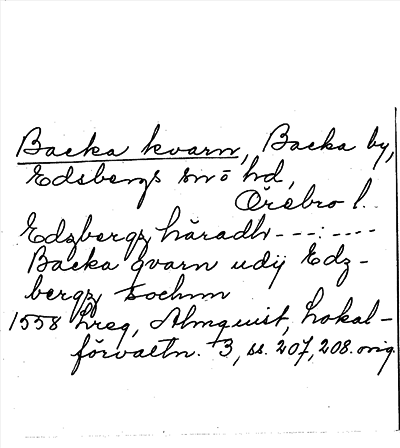 Backa kvarn, Backa by,
Edsbergs sn o hd,
Örebro l.
Edzbergz häradh - - - : - - - -
Backa qvarn udij Edz-
bergz sochnn
1558 Lreg, Almquist, Lokal-
förvaltn. 3, ss. 207, 208. orig.